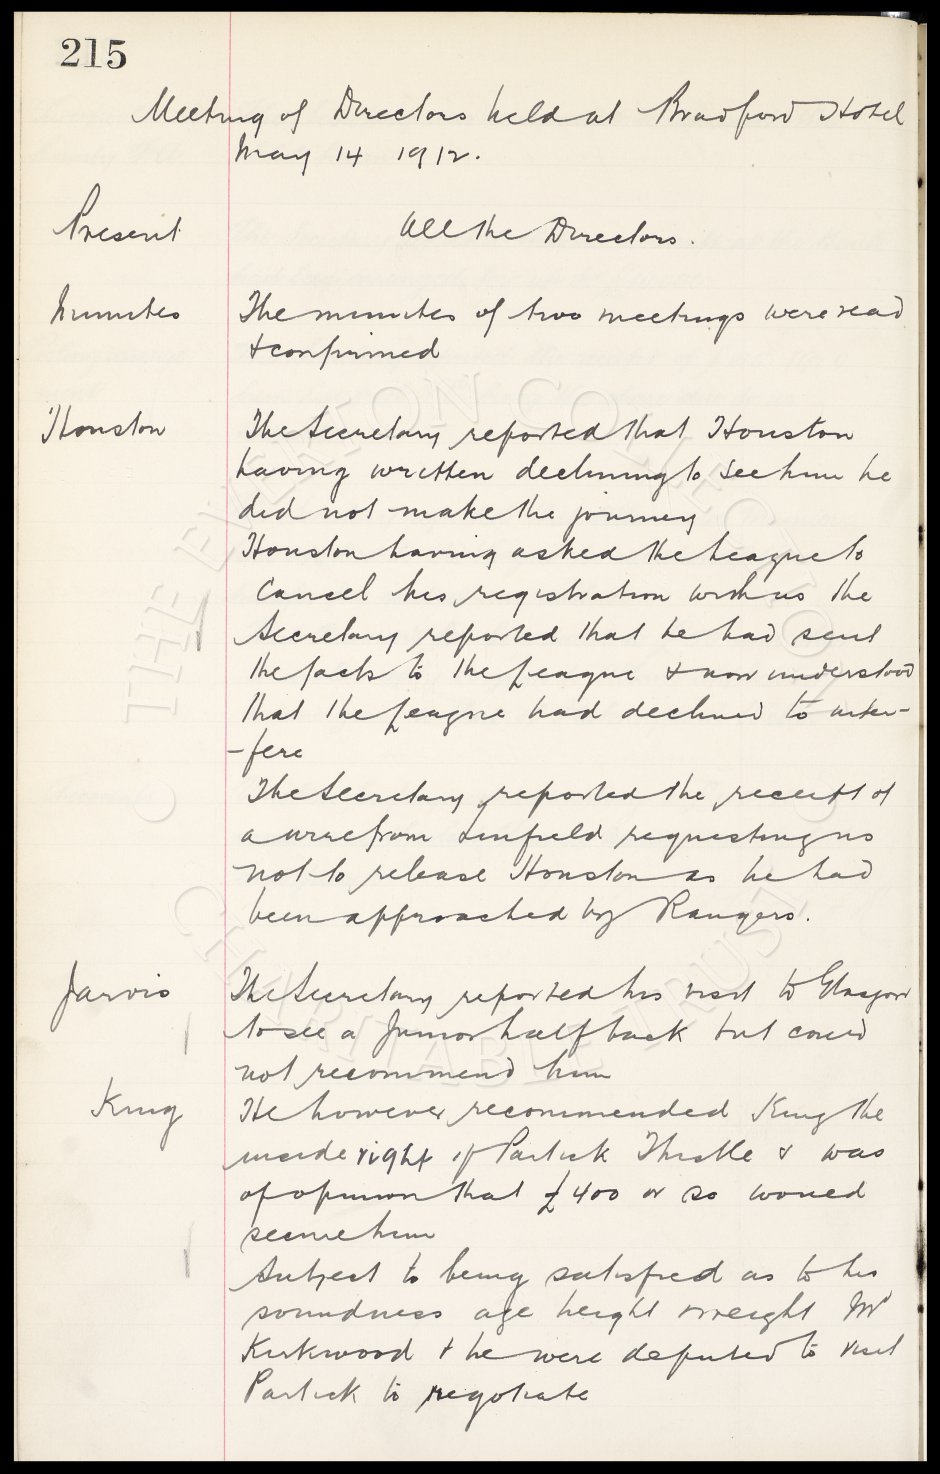 215
Meeting of Directors held at Bradford Hotel
May 14 1912.
Present All the Directors.
Minutes The minutes of two meetings were read
& confirmed
Houston The Secretary reported that Houston
having written declining to see him he
did not make the journey
Houston having asked the League to
cancel his registration with us the
Secretary reported that he had sent
the facts to the League & now understood
that the League had declined to inter-
-fere
The Secretary reported the receipt of
a wire from Linfield requesting us
not to release Houston as he had
been approached by Rangers.
Jarvis The Secretary reported his visit to Glasgow
to see a Junior half back but could
not recommend him
King He however recommended King the
inside right of Partick Thistle & was
of opinion that £400 or so would
secure him
Subject to being satisfied as to his
soundness age height & weight Mr
Kirkwood & he were deputed to visit
Partick to negotiate
© THE EVERTON COLLECTION
CHARITABLE TRUST